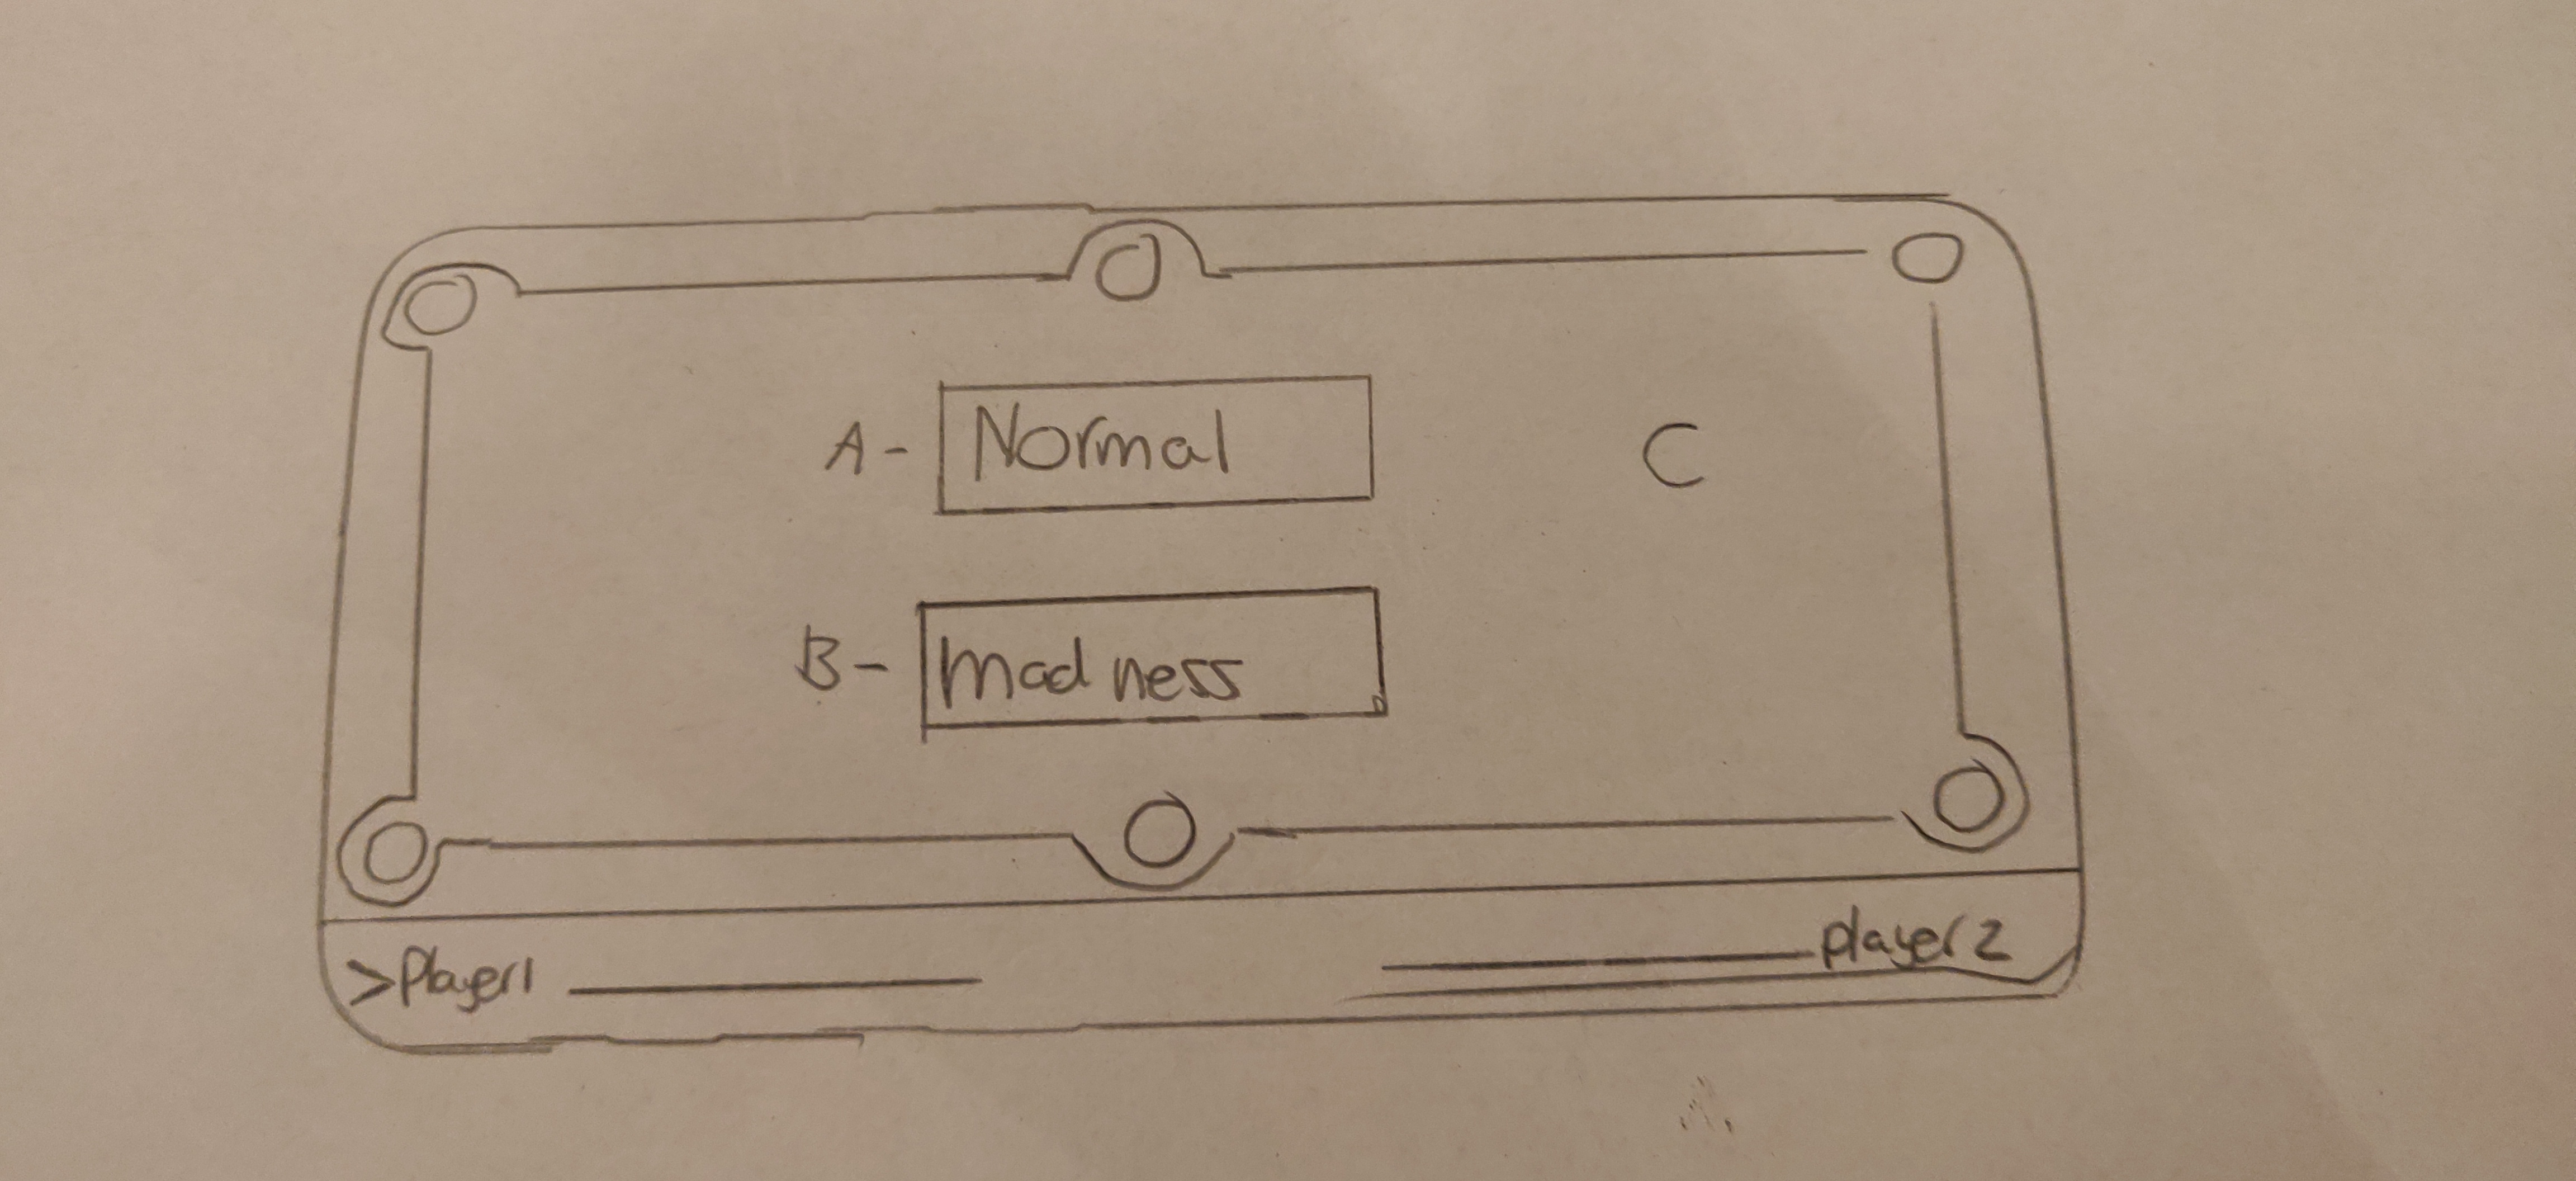 A - Normal
C
B - madness
>Player1
player2